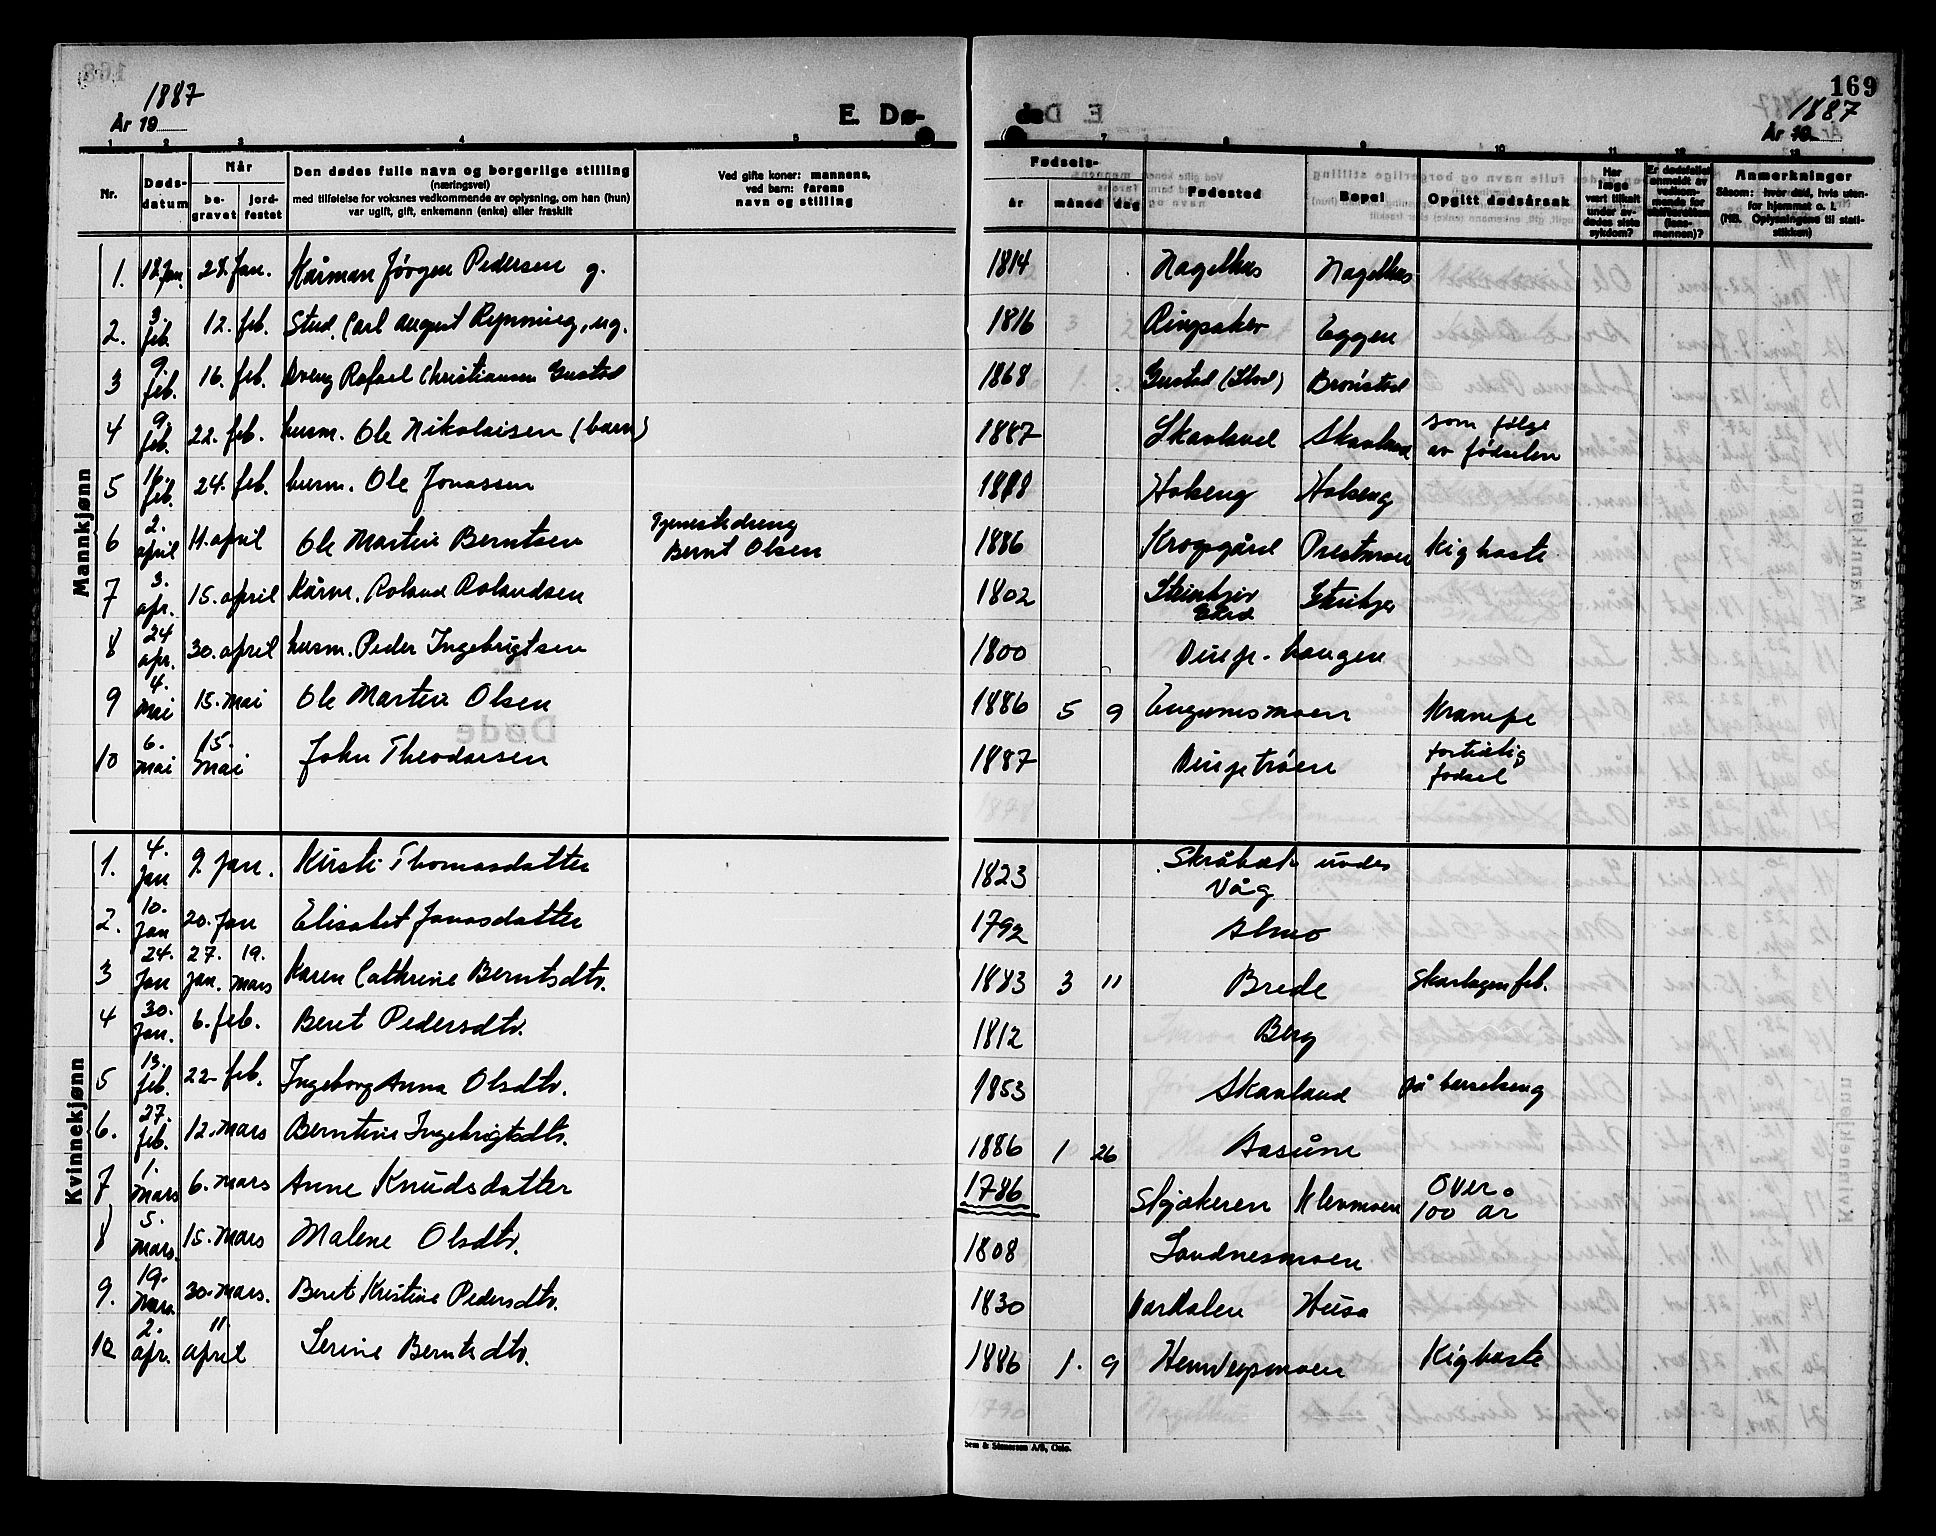 169
1887
År 19
E. Dø-
de
1887
År 19
1 2 3 4 5 7 8 9 10 11 12 13
Nr.
Døds-
datum
Når
be-
gravet
jord-
festet
Den dødes fulle navn og borgerlige stilling
(næringsvei)
med tilføielse for voksnes vedkommende av oplysning, om han (hun)
var ugift, gift, enkemann (enke) eller fraskilt
Ved gifte koner: mannens,
ved barn: farens
navn og stilling
Fødsels-
år
måned
dag
Fødested
Bopel
Opgitt dødsårsak
Har
læge
vært tilkalt
under av-
dødes siste
sykdom?
Er dødsfallet
anmeldt av
vedkom-
mende for
skifteretten
(lens-
mannen)?
Anmerkninger
Såsom: hvor død, hvis uten-
for hjemmet o. l.
(NB. Oplysningene til stati-
stikken)
Mannkjønn
1. 18. Jan. 28. Jan. Kårman Jørgen Pedersen g. 1814 Nagelhus Nagelhus
2. 3. feb. 12. feb. Stud. Carl August Rynning, ug. 1816 Ringsaker Eggen
3 9. feb. 16. feb. Dreng Rafael Christiansen Gustad 1868 Gustad (Stod) Brønstad
4 9. feb. 22. feb. husm. Ole Nikolaisen (barn) 1887 Skavland Skavland som følge
av fødselen
5 16. feb. 24. feb. husm. Ole Jonassen 1818 Holseng Holseng
6 2. april 11. april Ole Martin Berntsen Tjenestedreng
Bernt Olsen 1886 Krogsgård Prestmoen Kighoste
7 3. apr. 15. april Kårm. Roland Rolandsen 1802 Steinkjer
Steinkjer
8 24 apr. 30. april husm. Peder Ingebrigtsen 1800 haugen
9 4. Mai 15. Mai Ole Martin Olsen 1886 5 9 Krampe
10 6. Mai 15. Mai John Theodorsen 1887 fortidlig
fødsel
Kvinnekjønn
1. 4. Jan 9 Jan. Kirsti Thomasdatter 1823 Skråbæk under
Våg
2. 10. Jan 20. Jan Elisabet Jonasdatter 1792 Almo
3 24. Jan 27. Jan. 19. Mars Karen Cathrine Berntsdtr. 1883 3 11 Brede Skarlagenfeb.
4 30. Jan. 6. feb. Beret Pedersdtr. 1812 Berg
5 13. feb. 22 feb. Ingeborg Anna Olsdtr. 1853 Skavland på barselseng
6. 27. feb. 12. Mars Berntine Ingebrigtsdtr. 1886 1 26 Aasum
7 1. Mars 6. Mars Anne Knudsdatter 1786 Skjækeren Klevmoen Over
100 år
8 5. Mars. 15. Mars Malene Olsdtr. 1808 Sandnesmoen
9. 19. Mars 30. Mars. Beret Kristine Pedersdtr. 1830 Vardalen Husa
10 2. apr. 11. april Serine Berntsdtr. 1886 1. 9 Kighoste